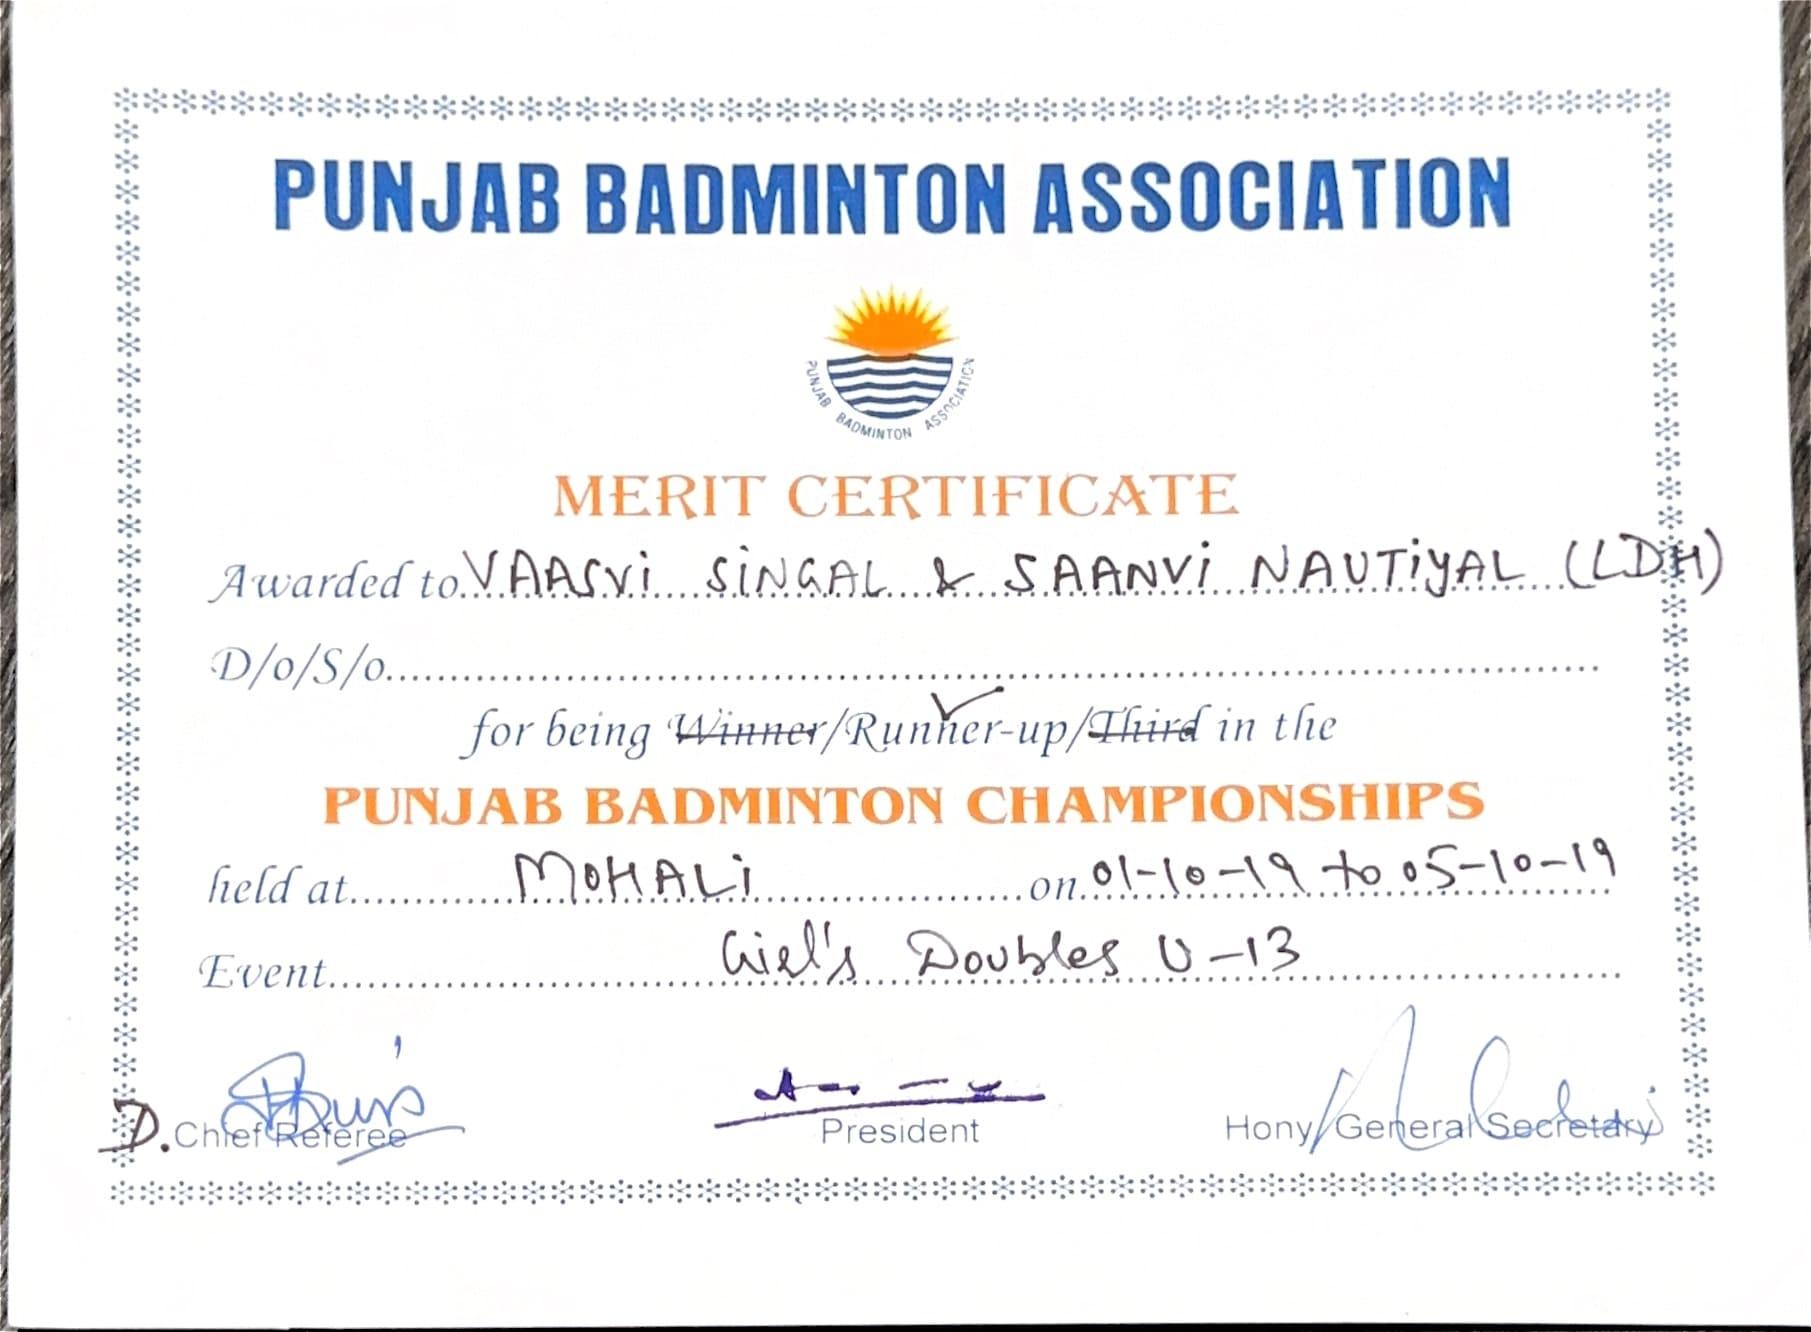 PUNJAB BADMINTON ASSOCIATION
PUNJAB BADMINTON ASSOCIATION
MERIT CERTIFICATE
Awarded to VAASVi SiNGAL & SAANVi NAUTiYAL (LDH)
D/o/S/o
for being Winner/Runner-up/Third in the
PUNJAB BADMINTON CHAMPIONSHIPS
held at MOHALi on 01-10-19 to 05-10-19
Event Girl's Doubles U-13
D. Chief Referee President Hony General Secretary